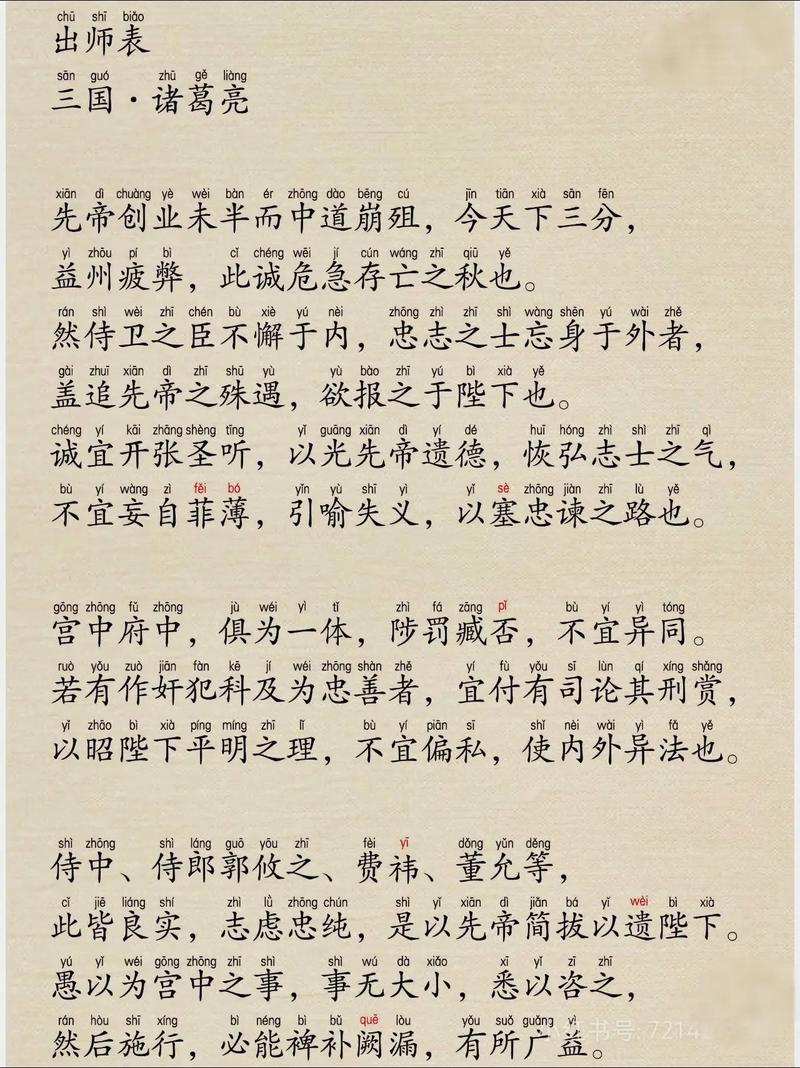 chū shī biǎo
出师表
sān guó zhū gě liàng
三国·诸葛亮
xiān dì chuàng yè wèi bàn ér zhōng dào bēng cú jīn tiān xià sān fēn
先帝创业未半而中道崩殂，今天下三分，
yì zhōu pí bì cǐ chéng wēi jí cún wáng zhī qiū yě
益州疲弊，此诚危急存亡之秋也。
rán shì wèi zhī chén bù xiè yú nèi zhōng zhì zhī shì wàng shēn yú wài zhě
然侍卫之臣不懈于内，忠志之士忘身于外者，
gài zhuī xiān dì zhī shū yù yù bào zhī yú bì xià yě
盖追先帝之殊遇，欲报之于陛下也。
chéng yí kāi zhāng shèng tīng yǐ guāng xiān dì yí dé huī hóng zhì shì zhī qì
诚宜开张圣听，以光先帝遗德，恢弘志士之气，
bù yí wàng zì fěi bó yǐn yù shī yì yǐ sè zhōng jiàn zhī lù yě
不宜妄自菲薄，引喻失义，以塞忠谏之路也。
gōng zhōng fǔ zhōng jù wéi yì tǐ zhì fá zāng pǐ bù yí yì tóng
宫中府中，俱为一体，陟罚臧否，不宜异同。
ruò yǒu zuò jiān fàn kē jí wéi zhōng shàn zhě yí fù yǒu sī lùn qí xíng shǎng
若有作奸犯科及为忠善者，宜付有司论其刑赏，
yǐ zhāo bì xià píng míng zhī lǐ bù yí piān sī shǐ nèi wài yì fǎ yě
以昭陛下平明之理，不宜偏私，使内外异法也。
shì zhōng shì láng guō yōu zhī fèi yī dǒng yǔn děng
侍中、侍郎郭攸之、费祎、董允等，
cǐ jiē liáng shí zhì lǜ zhōng chún shì yǐ xiān dì jiǎn bá yǐ wèi bì xià
此皆良实，志虑忠纯，是以先帝简拔以遗陛下。
yú yǐ wéi gōng zhōng zhī shì shì wú dà xiǎo xī yǐ zī zhī
愚以为宫中之事，事无大小，悉以咨之，
rán hòu shī xíng bì néng bì bǔ quē lòu yǒu suǒ guǎng yì
然后施行，必能裨补阙漏，有所广益。
书号: 7214